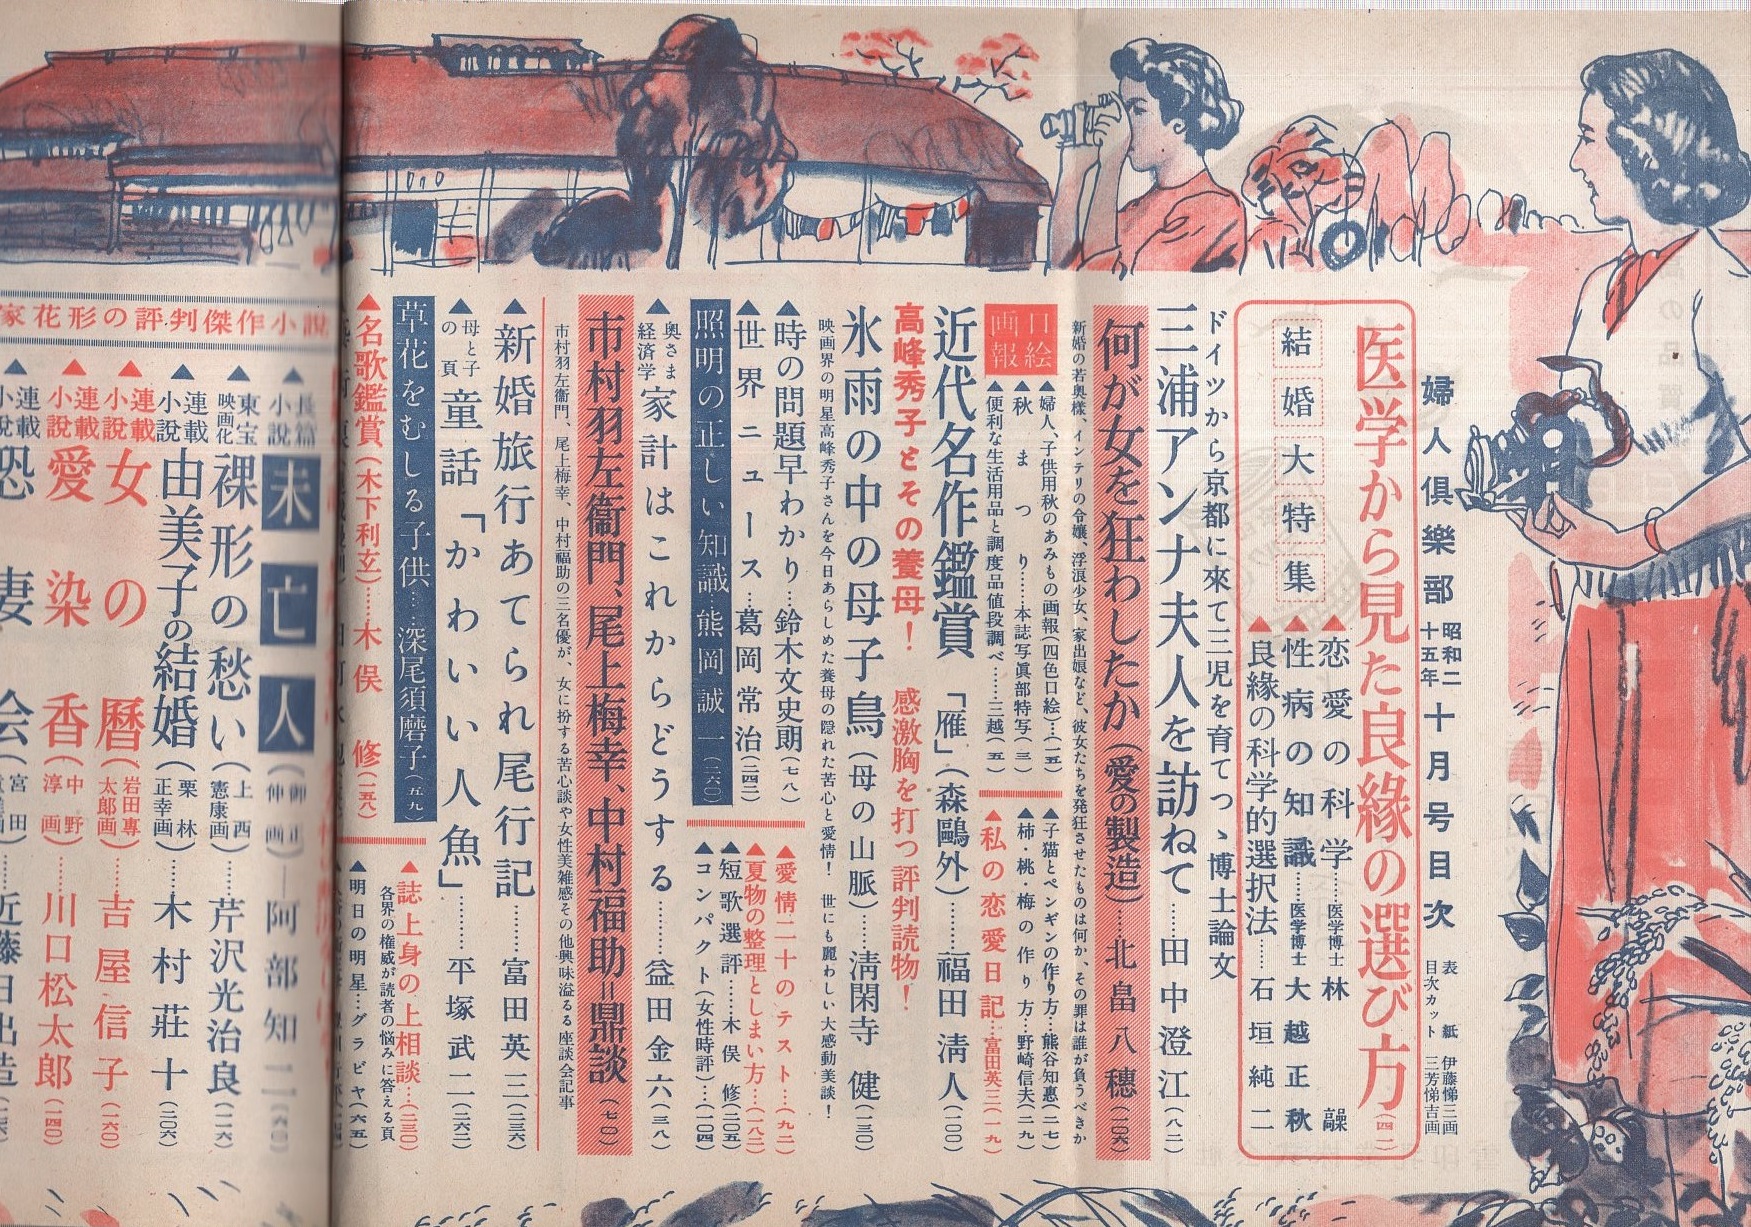 婦人倶樂部 昭和二十五年 十月号目次
表紙 伊藤悌三画
目次カット 三芳悌吉画
医学から見た良緣の選び方(四二)
結婚大特集
▲恋愛の科学……医学博士 林 髞
▲性病の知識……医学博士 大越正秋
▲良緣の科学的選択法……石垣純二
ドイツから京都に來て三児を育てつゝ博士論文
三浦アンナ夫人を訪ねて……田中澄江(八二)
何が女を狂わしたか(愛の製造)……北畠八穗(二〇六)
新婚の若奥様、インテリの令嬢、浮浪少女、家出娘など、彼女たちを発狂させたものは何か、その罪は誰が負うべきか
口絵画報
▲婦人、子供用秋のあみもの画報(四色口絵)…(一五)
▲秋まつり……本誌写眞部特写(三)
▲便利な生活用品と調度品値段調べ……三越(五)
▲子猫とペンギンの作り方…熊谷知惠(二七)
▲柿・桃・梅の作り方…野崎信夫(二九)
▲私の恋愛日記…富田英三(一九)
近代名作鑑賞 「雁」(森鷗外)……福田淸人(一〇〇)
高峰秀子とその養母! 感激胸を打つ評判読物!
氷雨の中の母子鳥(母の山脈)……淸閑寺 健(三〇)
映画界の明星高峰秀子さんを今日あらしめた養母の隠れた苦心と愛情! 世にも麗わしい大感動美談!
▲時の問題早わかり…鈴木文史朗(七八)
▲世界ニュース…葛岡常治(二四二)
照明の正しい知識…熊岡誠一(二六〇)
▲愛情二十のテスト…(九二)
▲夏物の整理としまい方…(一八二)
▲短歌選評……木俣 修(二〇五)
▲コンパクト(女性時評)…(一〇四)
▲奥さま経済学 家計はこれからどうする……益田金六(三八)
市村羽左衞門、尾上梅幸、中村福助=鼎談(七〇)
市村羽左衞門、尾上梅幸、中村福助の三名優が、女に扮する苦心談や女性美雑感その他興味溢るる座談会記事
▲新婚旅行あてられ尾行記……富田英三(二三六)
▲母と子の頁 童話「かわいい人魚」……平塚武二(二六二)
草花をむしる子供…深尾須磨子(五九)
▲誌上身の上相談…(二三〇)
各界の権威が読者の悩みに答える頁
▲名歌鑑賞(木下利玄)……木俣 修(一五八)
▲明日の明星…グラビヤ(六五)
家花形の評判傑作小説
▲長篇小説 未亡人(御正伸画)―阿部知二(六〇)
▲東宝映画化 裸形の愁い(上西憲康画)……芹沢光治良(二一六)
▲連載小説 由美子の結婚(栗林正幸画)……木村荘十(二〇六)
▲連載小説 女の暦(岩田專太郎画)……吉屋信子(一六〇)
▲連載小説 愛染香(中野淳画)……川口松太郎(一四〇)
▲連載小説 恐妻会(宮田
……近藤日出造